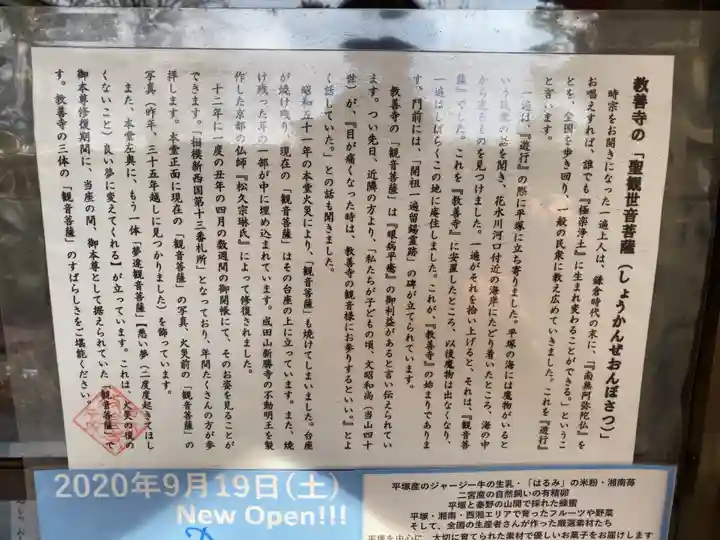 教善寺の「聖観世音菩薩(しょうかんぜおんぼさつ)」
時宗をお開きになった一遍上人は、鎌倉時代の末に、『南無阿弥陀仏』を
お唱えすれば、誰でも『極楽浄土』に生まれ変わることができる。」というこ
とを、全国を歩き回り、一般の民衆に教え広めていきました。これを『遊行』
と言います。
一遍は、『遊行』の際に平塚に立ち寄りました。平塚の海には魔物がいると
いう民衆の話を聞き、花水川河口付近の海岸にたどり着いたところ、海の中
から光るものを見つけました。一遍がそれを拾い上げると、それは、『観音菩
薩』でした。これを『教善寺』に安置したところ、以後魔物は出なくなり、
一遍はしばらくこの地に庵住しました。これが、『教善寺』の始まりでありま
す。門前には、「開祖一遍留錫霊跡」の碑が立てられています。
教善寺の「観音菩薩」は『眼病平癒』の御利益があると言い伝えられてい
ます。つい先日、近隣の方より、「私たちが子どもの頃、文昭和尚(当山四十
世)が、『目が痛くなった時は、教善寺の観音様にお参りするといい。』とよ
く話していた。」との話も聞きました。
昭和五十一年の本堂火災により、「観音菩薩」も焼けてしまいました。台座
が焼け残り、現在の「観音菩薩」はその台座の上に立っています。また、焼
け残った耳の一部が中に埋め込まれています。成田山新勝寺の不動明王を製
作した京都の仏師『松久宗琳氏』によって修復されました。
十二年に一度の丑年の四月の数週間の御開帳にて、そのお姿を見ることが
できます。「相模新西国第十三番札所」となっており、年間たくさんの方が参
拝します。本堂正面に現在の「観音菩薩」の写真、火災前の「観音菩薩」の
写真(昨年、三十五年越しに見つかりました)を飾っています。
また、本堂左奥に、もう一体「夢違観音菩薩」【悪い夢(二度度起きてほし
くないこと)良い夢に変えてくれる】が立っています。これは、火災の後の
御本尊修復期間に、当座の間、御本尊として据えられていた「観音菩薩」で
す。教善寺の三体の「観音菩薩」のすばらしさをご堪能ください。
2020年9月19日(土)
New Open!!!
平塚産のジャージー牛の生乳・「はるみ」の米粉・湘南苺
二宮産の自然飼いの有精卵
平塚と秦野の山間で採れた蜂蜜
平塚・湘南・西湘エリアで育ったフルーツや野菜
そして、全国の生産者さんが作った厳選素材たち
平塚を中心に、大切に育てられた素材で優しいお菓子をお届けします